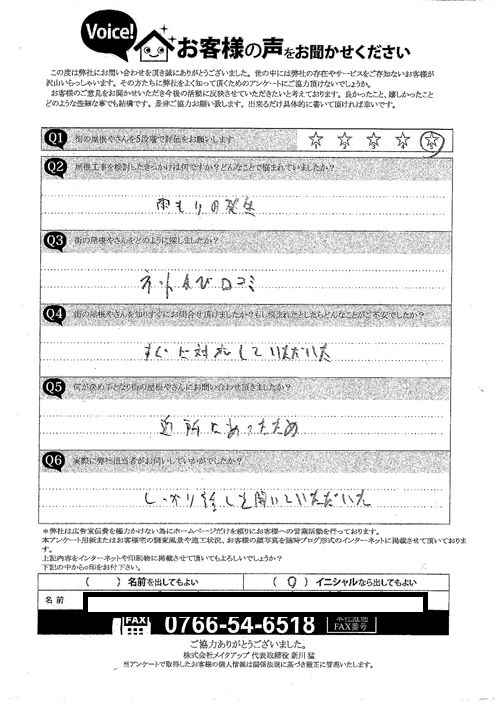 Voice!
お客様の声をお聞かせください
この度は弊社にお問い合わせを頂き誠にありがとうございました。世の中には弊社の存在やサービスをご存知ないお客様が
沢山いらっしゃいます。その方たちに弊社をよく知って頂くためのアンケートにご協力頂けないでしょうか。
お客様のご意見をお聞かせいただき今後の活動に反映させていただきたいと考えております。良かったこと、嬉しかったこと
どのような些細な事でも結構です。是非ご協力お願い致します。出来るだけ具体的に書いて頂ければ幸いです。
Q1 街の屋根やさんを5段階で評価をお願いします
1 2 3 4 5
Q2 屋根工事を検討したきっかけは何ですか？どんなことで悩まれていましたか？
雨もりの発生
Q3 街の屋根やさんをどのように探しましたか？
ネット及び口コミ
Q4 街の屋根やさんを知りすぐにお問合せ頂けましたか？もし悩まれたとしたらどんなことがご不安でしたか？
すぐに対応していただいた
Q5 何が決め手となり街の屋根やさんにお問い合わせ頂きましたか？
近所にあったため
Q6 実際に弊社担当者がお伺いしていかがでしたか？
しっかり話しを聞いていただいた
＊弊社は広告宣伝費を極力かけない為にホームページだけを頼りにお客様への営業活動を行っております。
本アンケート用紙またはお客様宅の調査風景や施工状況、お客様の顔写真を随時ブログ形式のインターネットに掲載させて頂いております。
上記内容をインターネットや印刷物に掲載させて頂いてもよろしいでしょうか？
下記の中から○印をお付下さい。
（ ）名前を出してもよい （ ○ ）イニシャルなら出してもよい
名前
FAX 0766-54-6518 本社直通 FAX番号
ご協力ありがとうございました。
株式会社メイクアップ 代表取締役 新川 猛
当アンケートで取得したお客様の個人情報は関係法規に基づき厳正に管理いたします。